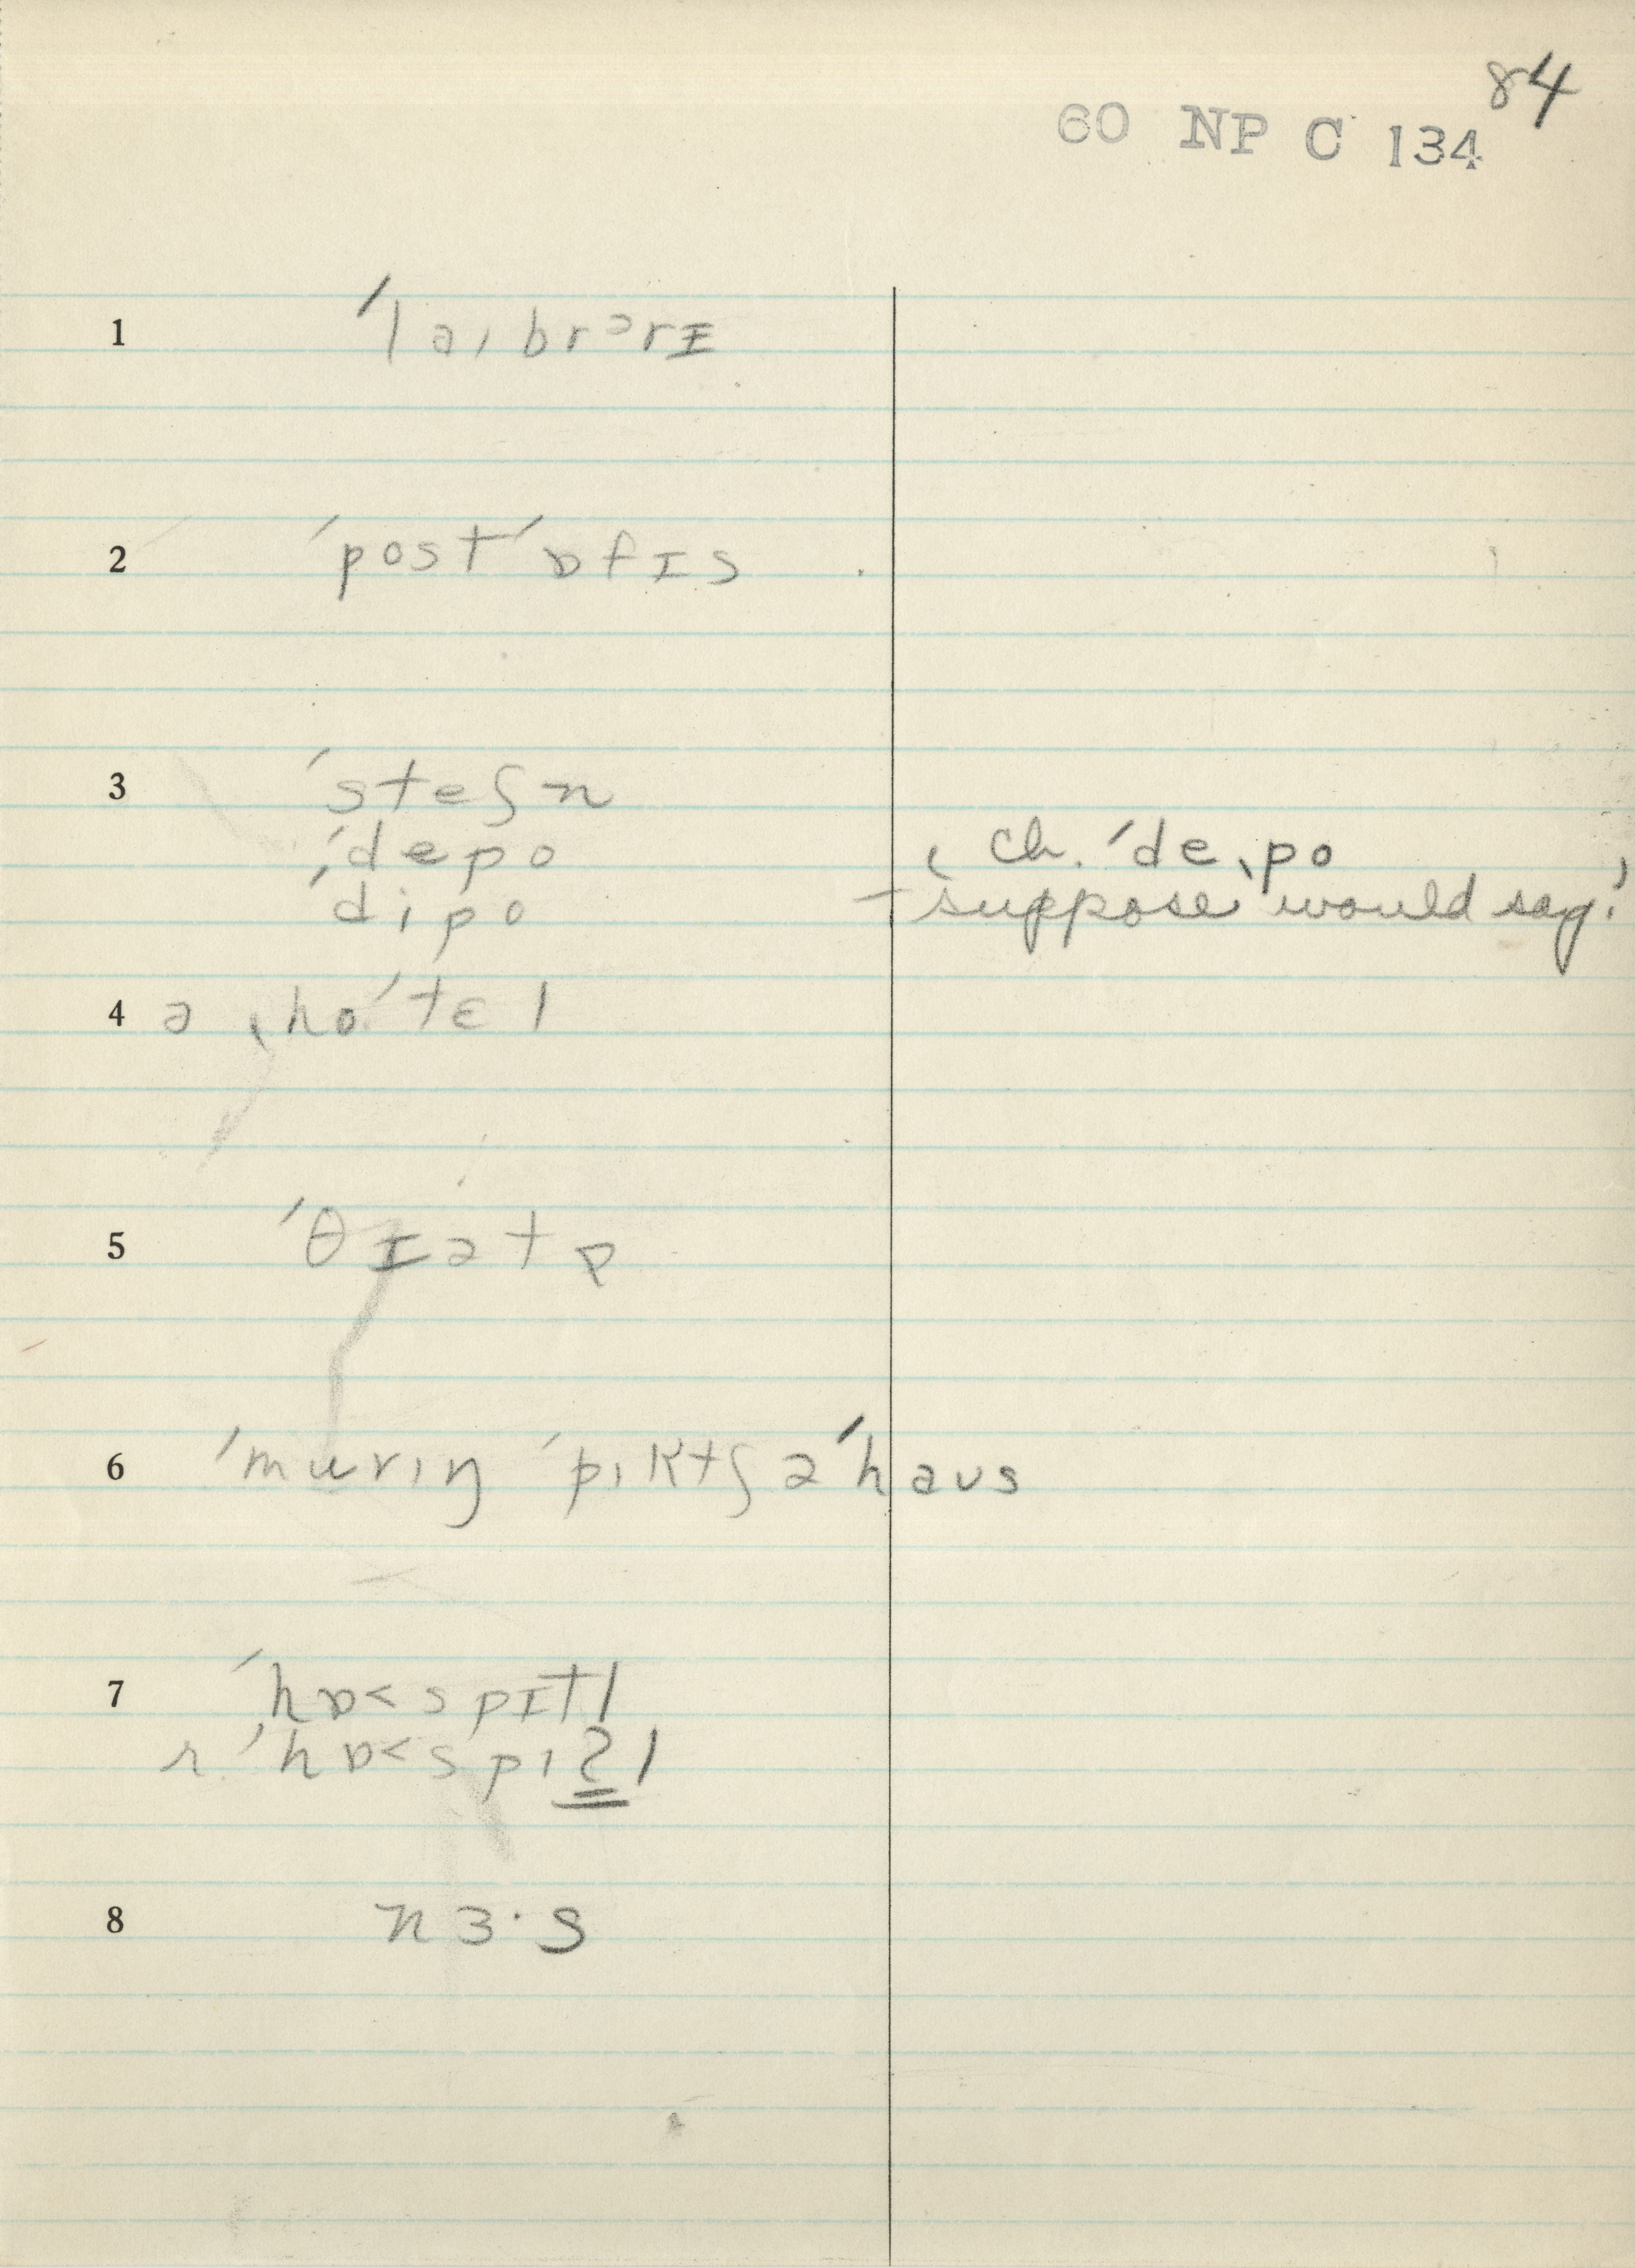 84
60 NP C 134
1 ˈlaɪbrərɪ
2 ˈpostˈɒfɪs
3 ˈsteʃn
ˈdepo ˌ ch. ˈdeˌpo
ˈdipo – ‘suppose would say!’
4 ə ˌhoˈtɛl
5 ˈθɪətɚ
6 ˈmurɪŋ ˈpɪktʃəˈhaus
7 ˈhɒ<spɪtl
r. ˈhɒ<spɪʔl
8 nɜ·s